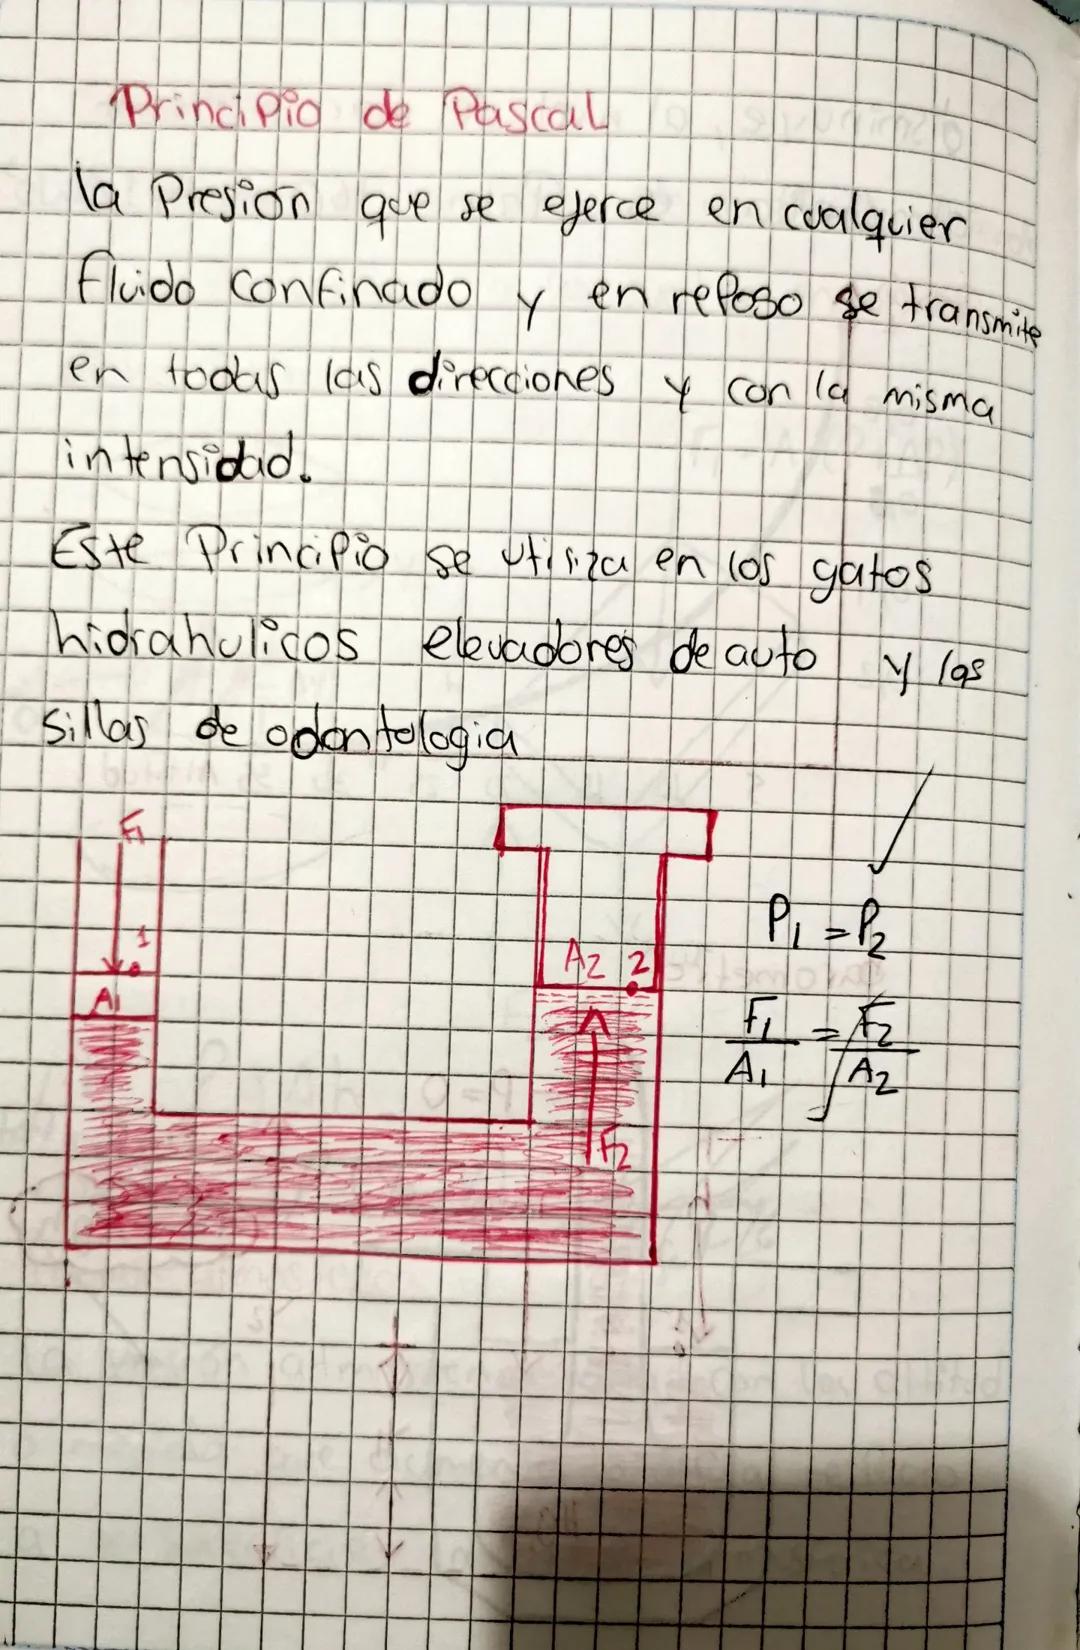 Principio de Pascal
la Presión que se ejerce en cualquier
fluido confinado y en reposo se transmite
en todas las direcciones y con la misma
intensidad.
Este Principio se utiliza en los gatos
hidrahulicos elevadores de auto y las
sillas de odontologia
F1
1
A1
A2 2
F2
P1 = P2
F1 = F2
A1 A2